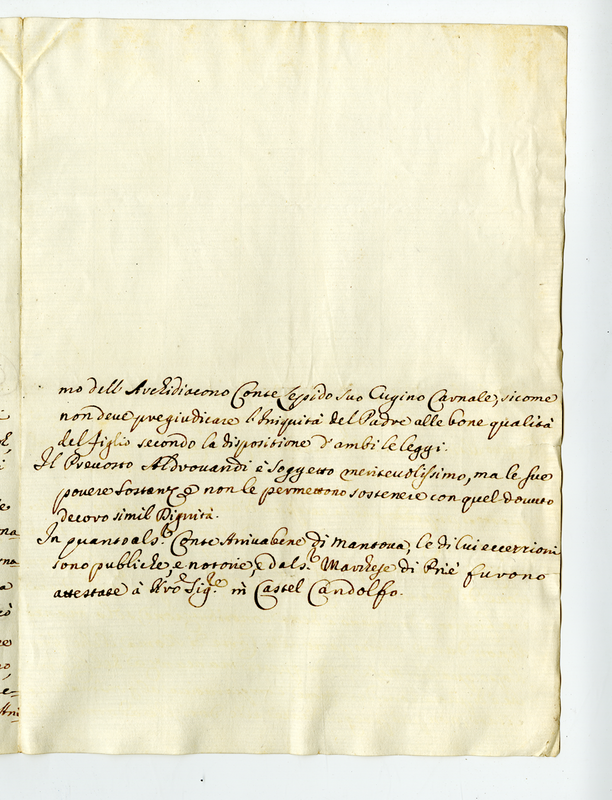 mo dell' Archidiacono Conte Lepido suo Cugino Carnale, sicome
non deve pregiudicare l'Iniquità del Padre alle bone qualità
del figlio secondo la dispositione d'ambi le leggi.
Il Prevosto Aldrovandi è soggetto meritevolissimo, ma le sue
povere sostanze non le permettono sostenere con quel dovuto
decoro simil Dignità.
In quanto al s.r Conte Arivabene di Mantova, le di lui eccettioni
sono publiche, e notorie, e dal s.r Marchese di Priè furono
attestate à Nro Sig.re in Castel Candolfo.